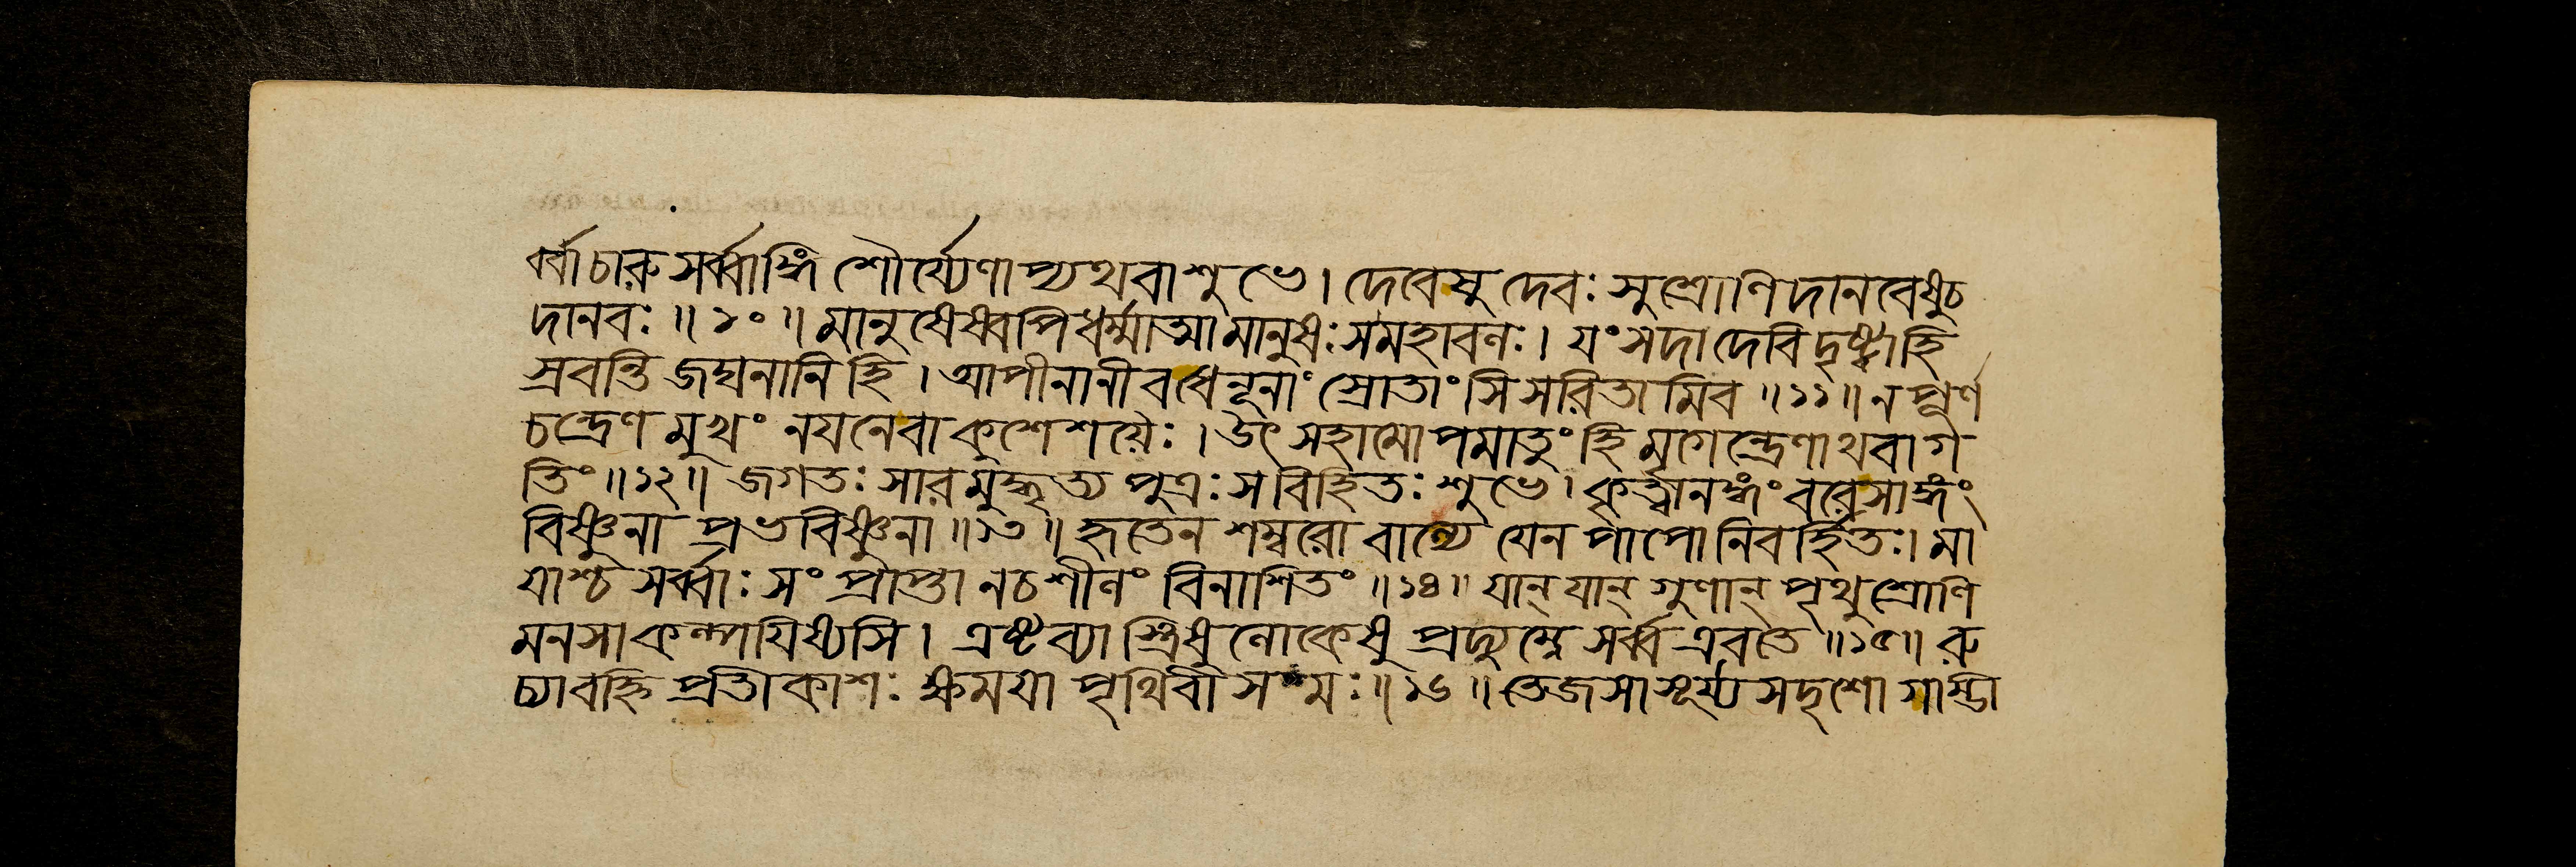 র্ব্বাচারু সর্ব্বাঙ্গি শৌর্য্যেণাপ্যথবাশুভে। দেবেসুদেবঃ সুশ্রোণিদানবেষুচ
দানবঃ ॥ ১০ ॥ মানুষেষ্বপিধর্ম্মাত্মামানুষঃ সমহাবলঃ। যং সদাদেবিদৃষ্ট্বাহি
স্রবন্তি জঘনানি হি। আপীনানীবধেনূনাং স্রোতাংসিসরিতামিব ॥ ১১ ॥ নপূর্ণ
চন্দ্রেণ মুখং নয়নেবাকুশেশয়ৈঃ। উৎসহামোপমাতুং হিমৃগেন্দ্রেণাথবাগ
তিং ॥ ১২ ॥ জগতঃ সারমুদ্ধৃত্য পুত্রঃ সবিহিতঃ শুভে। কৃর্ত্ত্বানঙ্গং বরেসাঙ্গং
বিষ্ণুনা প্রভবিষ্ণুনা ॥ ১৩ ॥ হৃতেন শম্বরো বাল্যে যেন পাপোনিবর্হিতঃ। মা
যাশ্চ সর্ব্বাঃ সংপ্রাপ্তা নচশীলং বিনাশিতং ॥ ১৪ ॥ যান্ যান্ গুণান্ পৃথুশ্রোণি
মনসাকল্পযিষ্যসি। এষ্টব্যাস্ত্রিষুলোকেষু প্রদ্যুম্নে সর্ব্ব এবতে ॥ ১৫ ॥ রু
চ্যাবহ্নি প্রতীকাশঃ ক্ষমযা পৃথিবী সমঃ ॥ ১৬ ॥ তেজসাসূর্য্যসদৃশো গাম্ভী